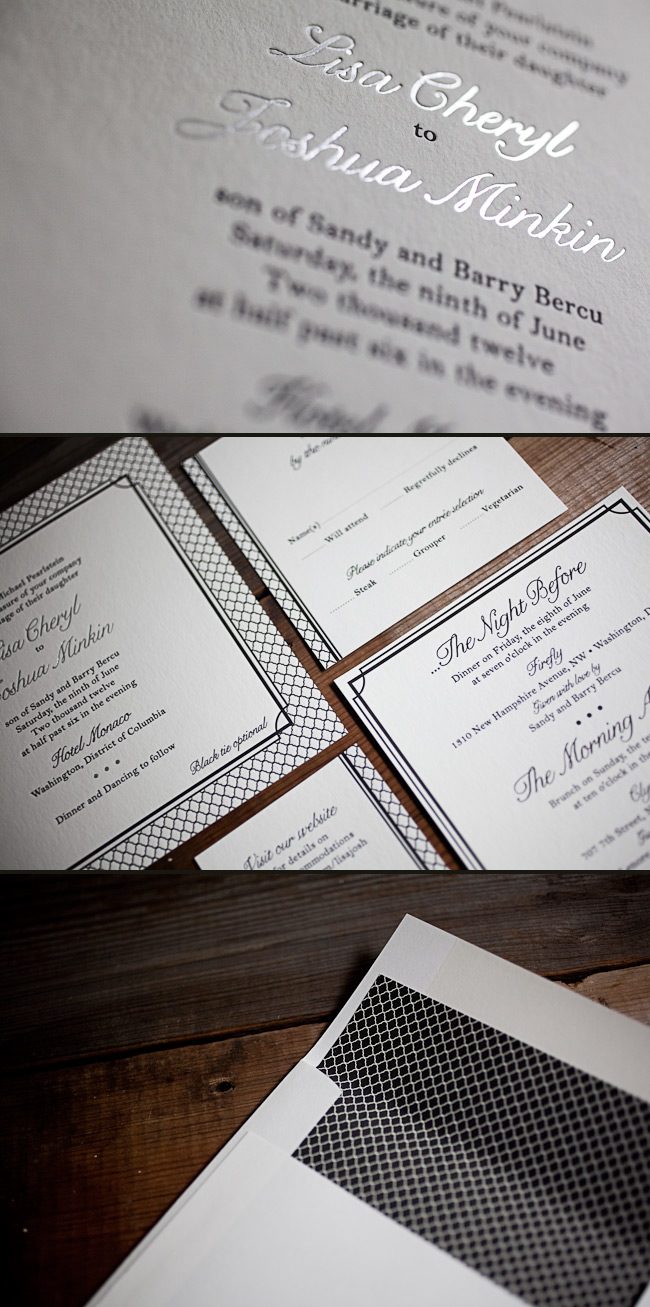 Michael Pearlstein
pleasure of your company
marriage of their daughter
Lisa Cheryl
to
Joshua Minkin
son of Sandy and Barry Bercu
Saturday, the ninth of June
Two thousand twelve
at half past six in the evening
Hotel
Michael Pearlstein
of your company
of their daughter
Lisa Cheryl
to
Joshua Minkin
son of Sandy and Barry Bercu
Saturday, the ninth of June
Two thousand twelve
at half past six in the evening
Hotel Monaco
Washington, District of Columbia
Dinner and Dancing to follow
Black tie optional
by the
Name(s)
Will attend
Regretfully declines
Please indicate your entrée selection
Steak
Grouper
Vegetarian
...The Night Before
Dinner on Friday, the eighth of June
at seven o'clock in the evening
Firefly
1310 New Hampshire Avenue, NW • Washington, D
Given with love by
Sandy and Barry Bercu
The Morning A
Brunch on Sunday, the te
at ten o'clock in the
707 7th Street, N
Visit our website
for details on
/lisajosh